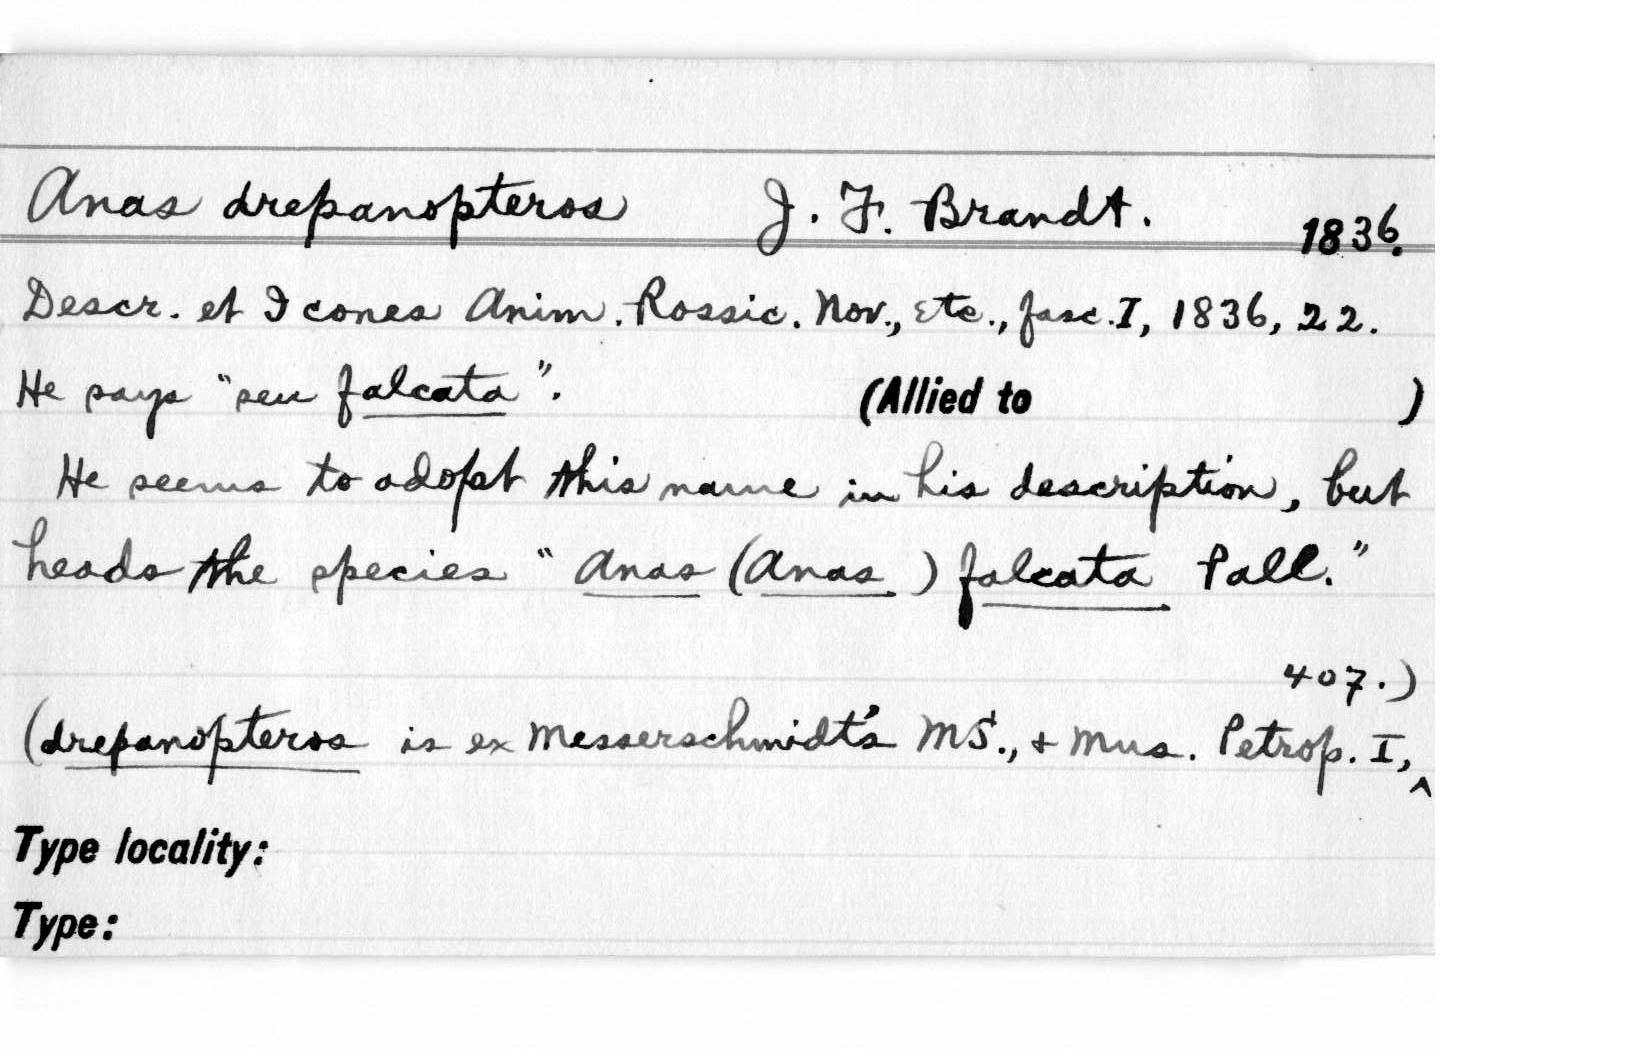 Anas drepanopteros J. F. Brandt. 1836.
Descr. et Icones Anim. Rossic. Nov., etc., fasc. I, 1836, 22.
He says "seu falcata". (Allied to )
He seems to adopt this name in his description, but
heads the species "Anas (Anas) falcata Pall."
407.)
(drepanopteros is ex Messerschmidt's MS., + Mus. Petrop. I, ^
Type locality:
Type: